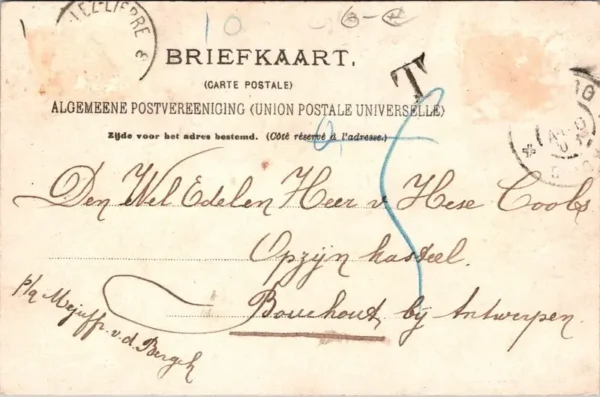 10
BRIEFKAART.
(CARTE POSTALE)
T
ALGEMEENE POSTVEREENIGING (UNION POSTALE UNIVERSELLE)
Zijde voor het adres bestemd. (Côté réservé à l'adresse.)
Den Wel Edelen Heer v Hese Cools
Opzijn kasteel.
Bouchout bij Antwerpen.
p/a Mejuffr. v. d. Bergh